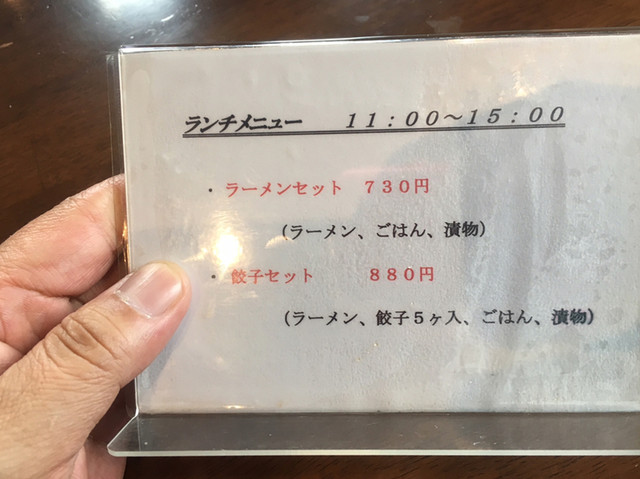 ランチメニュー １１：００～１５：００
・ラーメンセット ７３０円
（ラーメン、ごはん、漬物）
・餃子セット ８８０円
（ラーメン、餃子５ヶ入、ごはん、漬物）